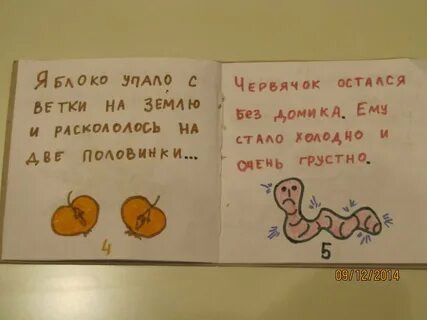 Яблоко упало с
ветки на землю
и раскололось на
две половинки...
4
Червячок остался
без домика. Ему
стало холодно и
очень грустно.
5
09/12/2014